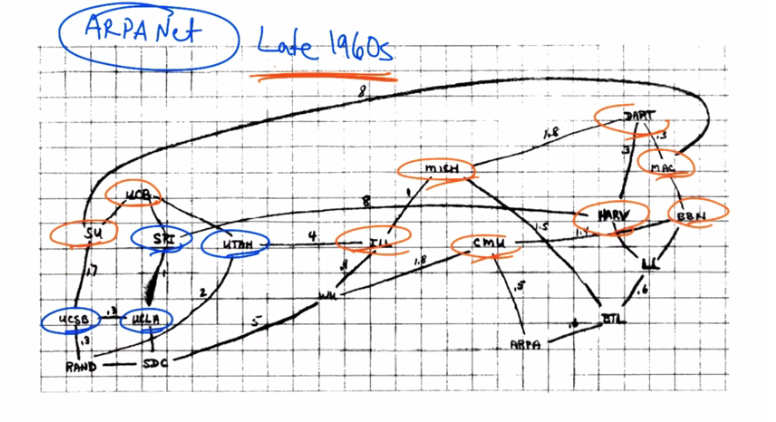 ARPANet
Late 1960s
8
DART
1.8
.3
3
MAC
MICH
UCB
1
8
HARV
BBN
SU
SRI
UTAH
4
ILL
CMU
1.5
1.4
LL
.7
1
2
.8
1.8
WU
.5
.6
UCSB
.3
UCLA
5
BTL
.3
ARPA
.6
RAND
SDC